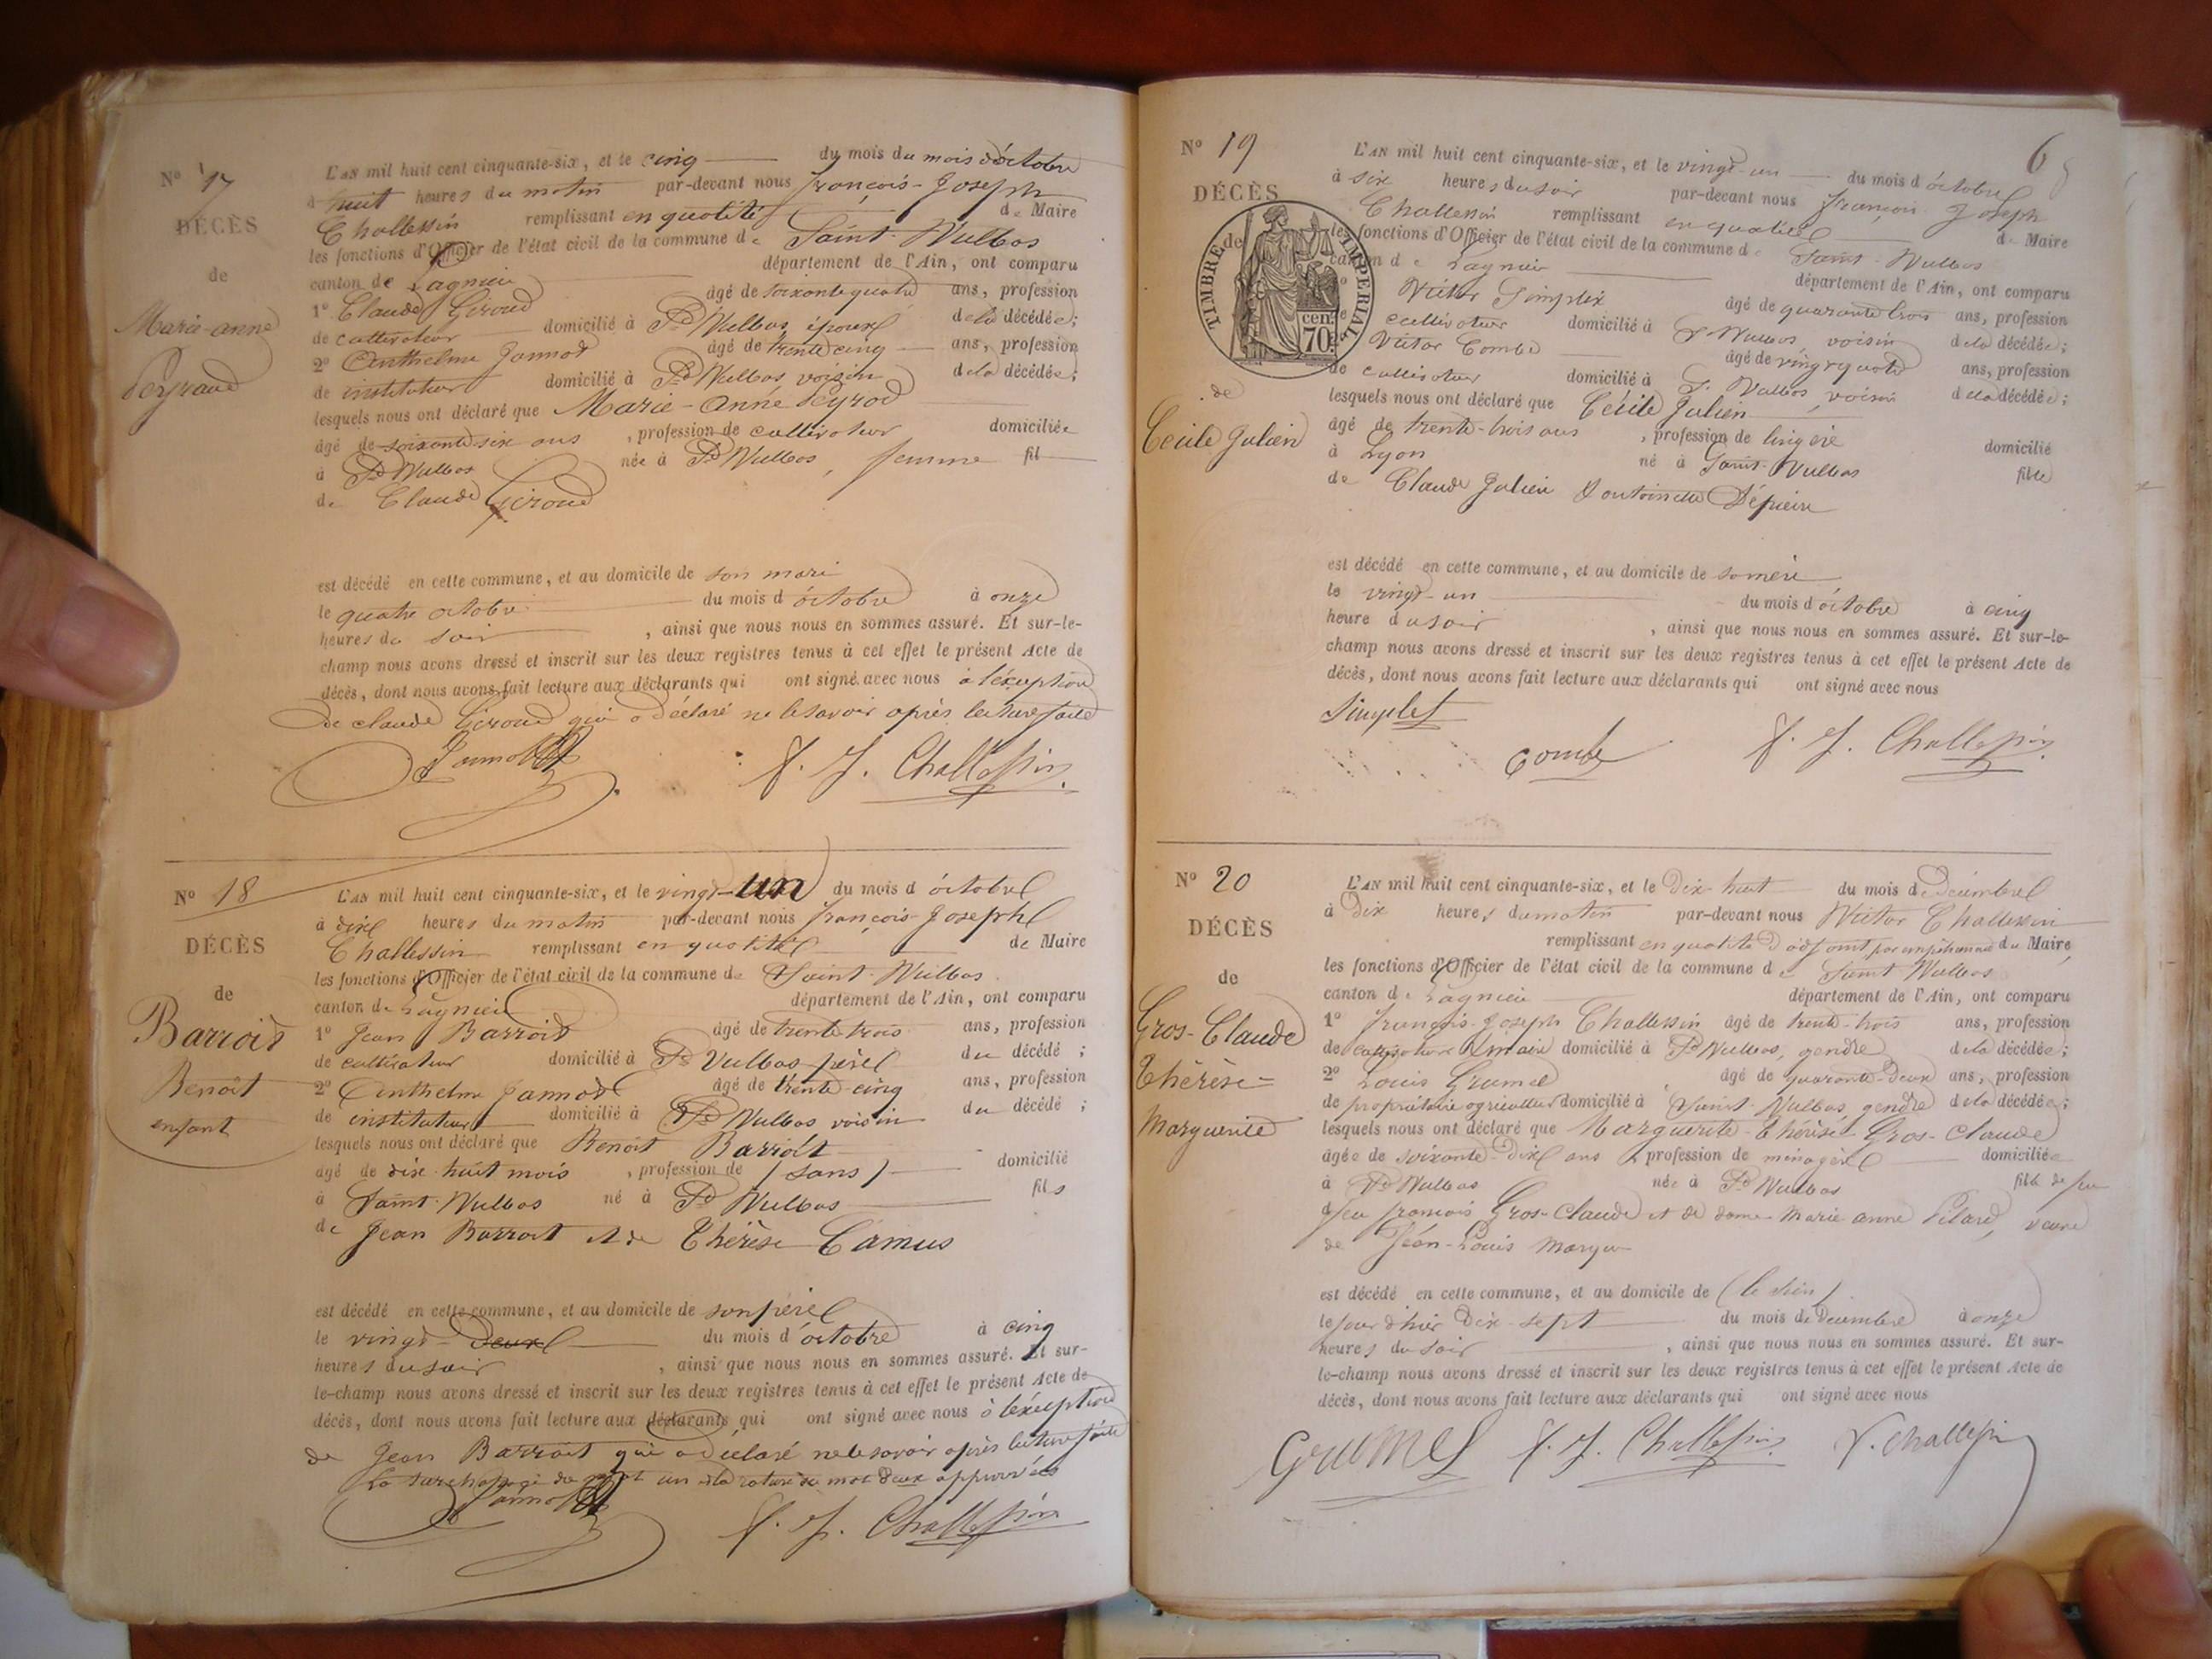 No 17
DÉCÈS
de
Marie-anne
Peyraud
L'AN mil huit cent cinquante-six, et le cinq du mois du mois d'octobre
à huit heures du matin par-devant nous françois-Joseph
Challessin remplissant en qualité de Maire
les fonctions d'Officier de l'état civil de la commune de Saint-Vulbas
canton de Lagnieu département de l'Ain, ont comparu
1o Claude Giroud âgé de soixante quatre ans, profession
de cultivateur domicilié à St Vulbas, époux de la décédée;
2o Anthelme Jannot âgé de trente cinq ans, profession
de instituteur domicilié à St Vulbas voisin de la décédée;
lesquels nous ont déclaré que Marie-Anne Peyrod
âgé de soixante six ans, profession de cultivateur domiciliée
à St Vulbas née à St Vulbas, femme fil
de Claude Giroud
est décédé en cette commune, et au domicile de son mari
le quatre octobre du mois d'octobre à onze
heures du soir, ainsi que nous nous en sommes assuré. Et sur-le-
champ nous avons dressé et inscrit sur les deux registres tenus à cet effet le présent Acte de
décès, dont nous avons fait lecture aux déclarants qui ont signé avec nous à l'éxception
de claude Giroud qui a déclaré ne le savoir après lecture faite
Jannot F. J. Challessin
No 18
DÉCÈS
de
Barroit
Benoît
enfant
L'AN mil huit cent cinquante-six, et le vingt-un du mois d'octobre
à dix heures du matin par-devant nous françois-Joseph
Challessin remplissant en qualité de Maire
les fonctions d'Officier de l'état civil de la commune de Saint-Vulbas
canton de Lagnieu département de l'Ain, ont comparu
1o Jean Barroit âgé de trente trois ans, profession
de cultivateur domicilié à St Vulbas père du décédé;
2o Anthelme Jannot âgé de trente cinq ans, profession
de instituteur domicilié à St Vulbas voisin du décédé;
lesquels nous ont déclaré que Benoît Barroit
agé de dix huit mois, profession de (sans) domicilié
à Saint-Vulbas né à St Vulbas fils
de Jean Barroit et de Thérèse Camus
est décédé en cette commune, et au domicile de son père
le vingt-deux du mois d'octobre à cinq
heures du soir, ainsi que nous nous en sommes assuré. Et sur-
le-champ nous avons dressé et inscrit sur les deux registres tenus à cet effet le présent Acte de
décès, dont nous avons fait lecture aux déclarants qui ont signé avec nous à l'éxception
de Jean Barroit qui a déclaré ne le savoir après lecture faite
La surcharge du mot un et la rature du mot deux approuvées
Jannot F. J. Challessin
6
No 19
DÉCÈS
TIMBRE IMPERIAL
70 cen
de
Cécile Julien
L'AN mil huit cent cinquante-six, et le vingt-un du mois d'octobre
à six heures du soir par-devant nous françois Joseph
Challessin remplissant en qualité de Maire
les fonctions d'Officier de l'état civil de la commune de Saint-Vulbas
canton de Lagnieu département de l'Ain, ont comparu
Victor Simplex âgé de quarante trois ans, profession
de cultivateur domicilié à St Vulbas, voisin de la décédée;
Victor Combe âgé de vingt quatre ans, profession
de cultivateur domicilié à St Vulbas, voisin de la décédée;
lesquels nous ont déclaré que Cécile Julien
âgé de trente-trois ans, profession de lingère domicilié
à Lyon né à Saint-Vulbas fille
de Claude Julien & antoinette Dépierre
est décédé en cette commune, et au domicile de sa mère
le vingt-un du mois d'octobre à cinq
heure du soir, ainsi que nous nous en sommes assuré. Et sur-le-
champ nous avons dressé et inscrit sur les deux registres tenus à cet effet le présent Acte de
décès, dont nous avons fait lecture aux déclarants qui ont signé avec nous
Simplex
Combe F. J. Challessin
No 20
DÉCÈS
de
Gros-Claude
Thérèse-
Marguerite
L'AN mil huit cent cinquante-six, et le Dix-huit du mois de Décembre
à Dix heures du matin par-devant nous Victor Challessin
remplissant en qualité d'adjoint par empêchement du Maire,
les fonctions d'Officier de l'état civil de la commune de Saint Vulbas
canton de Lagnieu département de l'Ain, ont comparu
1o françois-Joseph Challessin âgé de trente-trois ans, profession
de cultivateur & maire domicilié à St Vulbas, gendre de la décédée;
2o Louis Grumel âgé de quarante-Deux ans, profession
de propriétaire agriculteur domicilié à Saint-Vulbas, gendre de la décédée;
lesquels nous ont déclaré que Marguerite-Thérèse Gros-claude
âgée de soixante-Dix ans, profession de ménagère domiciliée
à St Vulbas née à St Vulbas fille de feu
d feu françois Gros-claude et de dame Marie anne Pitard, veuve
de Jéan-Louis
est décédé en cette commune, et au domicile de (le sien)
le jour d'hier Dix-sept du mois de Décembre à onze
heures du soir, ainsi que nous nous en sommes assuré. Et sur-
le-champ nous avons dressé et inscrit sur les deux registres tenus à cet effet le présent Acte de
décès, dont nous avons fait lecture aux déclarants qui ont signé avec nous
Grumel F. J. Challessin V. Challessin